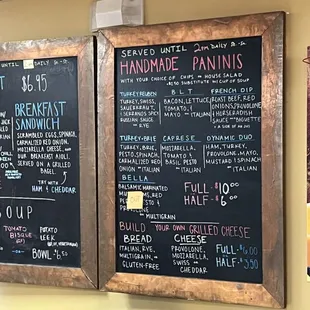 UNTIL
$6.95
BREAKFAST
SANDWICH
SCRAMBLED EGGS, SPINACH,
CARMALIZED RED ONION,
MOZZARELLA CHEESE, AND
OUR BREAKFAST AIOLI.
SERVED ON A GRILLED
BAGEL
TRY IT WITH
HAM & CHEDDAR
SOUP
TOMATO
BISQUE
POTATO
LEEK
BOWL-6.50
SERVED UNTIL 2PM DAILY
HANDMADE PANINIS
WITH YOUR CHOICE OF CHIPS OR HOUSE SALAD
SUBSTITUTE W/ CUP OF SOUP
TURKEY REUBEN
TURKEY, SWISS,
SAUERKRAUT,
RUSSIAN SAUCE
RYE
BLT
BACON, LETTUCE,
TOMATO,
MAYO
ITALIAN
FRENCH DIP
ROAST BEEF, RED
ONIONS, PROVOLONE,
HORSERADISH
SAUCE BAGUETTE
TURKEY-BRIE
TURKEY, BRIE,
PESTO, SPINACH,
CARMALIZED RED
ONION ITALIAN
CAPRESE
MOZZARELLA,
TOMATO &
BASIL PESTO
ITALIAN
DYNAMIC DUO
HAM, TURKEY,
PROVOLONE, MAYO,
MUSTARD & SPINACH
ITALIAN
BELLA
BALSAMIC MARINATED
MUSHROOMS, RED
PROVOLONE
MULTIGRAIN
FULL-10.00
HALF-6.00
BUILD YOUR OWN GRILLED CHEESE
BREAD
ITALIAN, RYE,
MULTIGRAIN, OR
GLUTEN-FREE
CHEESE
PROVOLONE,
MOZZARELLA,
SWISS OR
CHEDDAR
FULL-6.00
HALF-3.50